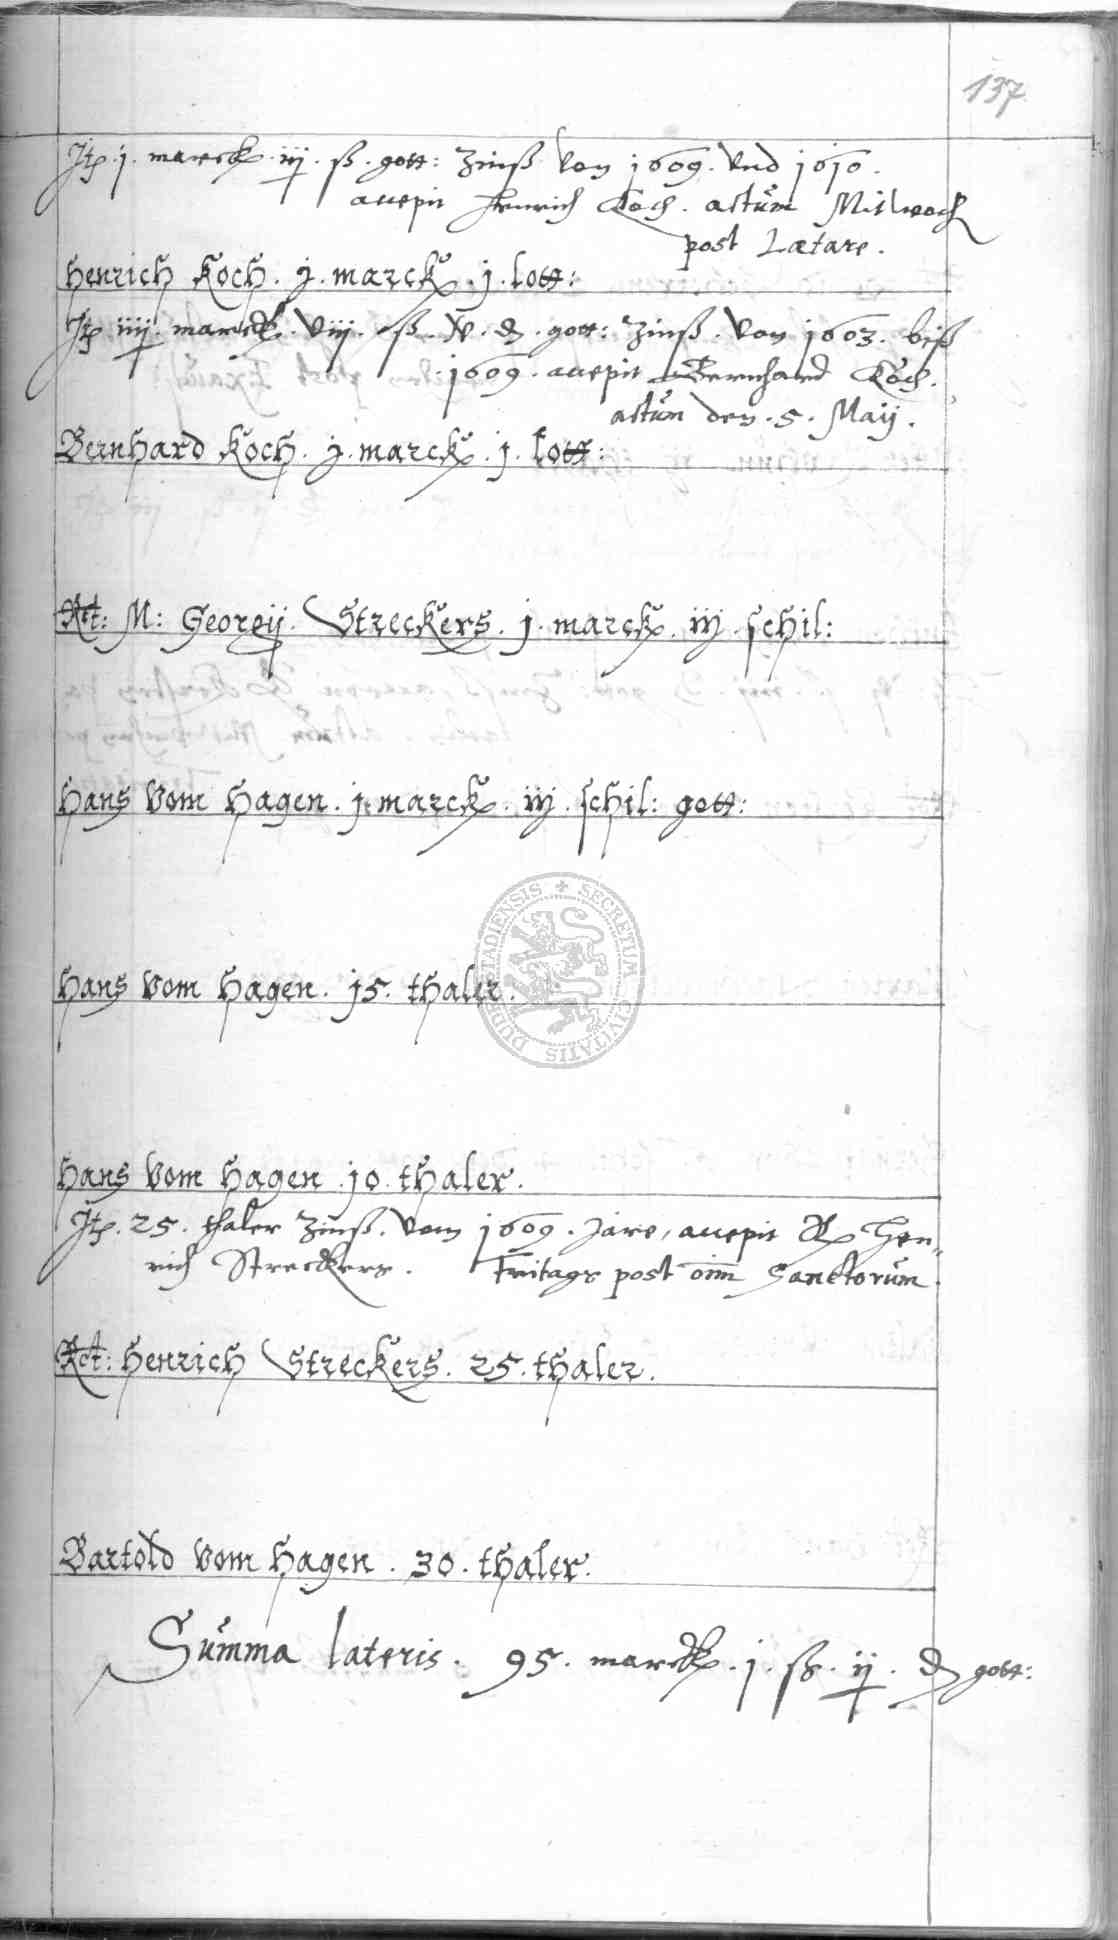 137
Itƺ. j. marck. iij. ß. gott: Zinß von 1609. vnd 1610.
accepit Henrich Koch. actum Mitwoch
post Lætare.
Henrich Koch. j. marck. j. lott:
Itƺ iiij. marck. viij. ß. v. ₰. gott: Zinß. von 1603. biß
1609. accepit Bernhard Koch.
actum den. 5. Maij.
Bernhard Koch. j. marck. j. lott:
Rct: M: Georgij. Streckers. j. marck. iij. schil:
Hans vom Hagen. j. marck. iij. schil: gott:
Hans vom Hagen. 15. thaler.
DUDERSTADIENSIS + SECRETUM CIVITATIS
Hans vom Hagen. 10. thaler.
Itƺ. 25. thaler Zinß. vom 1609. Jare, accepit R. Hen„
rich Streckers. Freitags post oīm Sanctorum.
Rct: Henrich Streckers. 25. thaler.
Bartold vom Hagen. 30. thaler.
Summa lateris. 95. marck. j. ß. ij. ₰ gott: